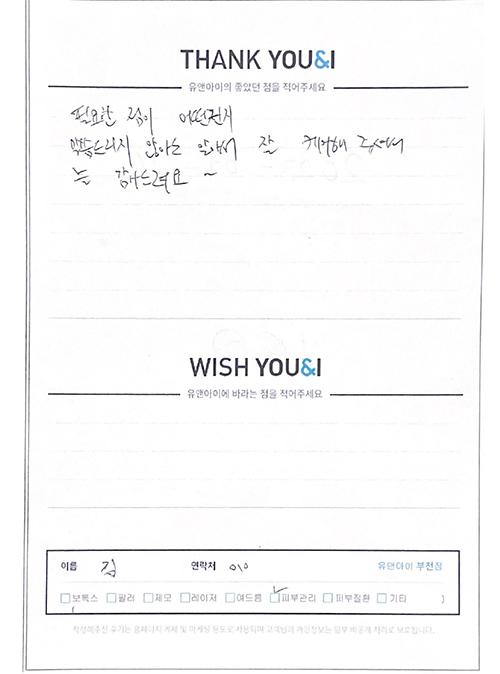 THANK YOU&I
유앤아이의 좋았던 점을 적어주세요
필요한 점이 어떤건지
말씀드리지 않아도 알아서 잘 케어해 주셔서
늘 감사드려요 ~
WISH YOU&I
유앤아이에 바라는 점을 적어주세요
이름 김 연락처 010 유앤아이 부천점
보톡스 필러 제모 레이저 여드름 피부관리 피부질환 기타 )
작성해주신 후기는 홈페이지 게재 및 마케팅 용도로 사용되며 고객님의 개인정보는 일부 비공개 처리로 보호됩니다.